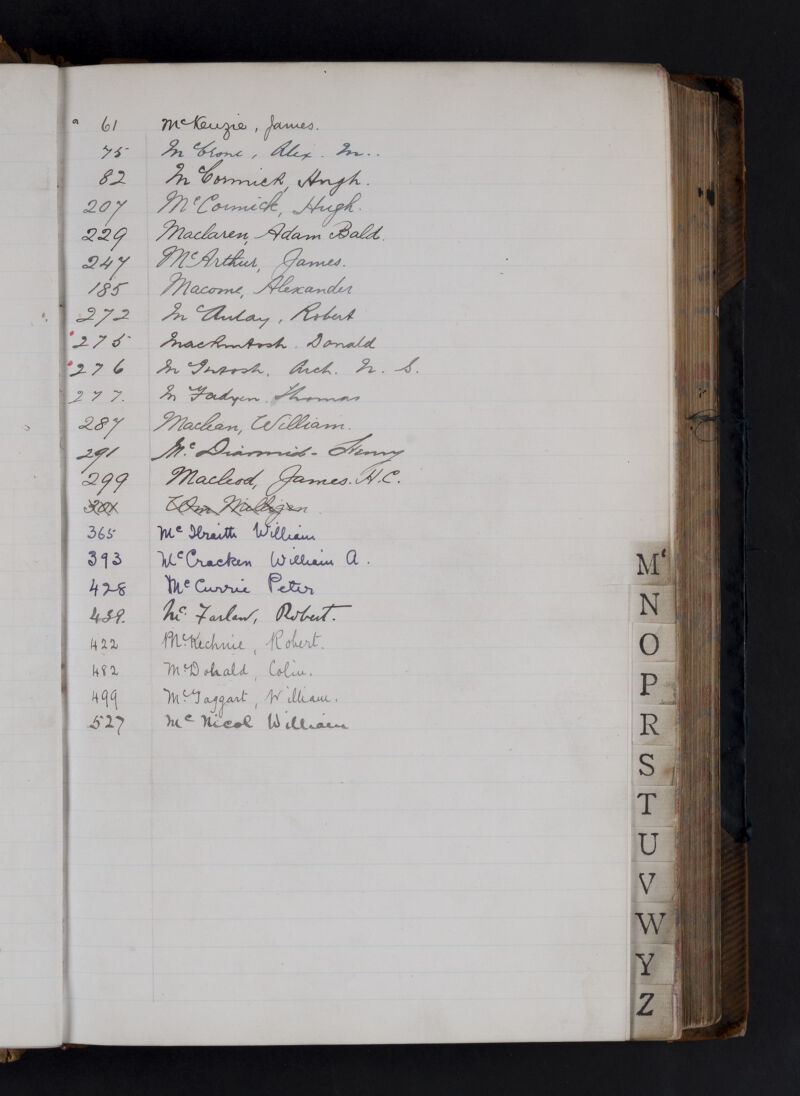 61 McKenzie, James.
75 McCrone, Alex. M..
82 McCormick, Hugh.
207 McCormick, Hugh.
229 Maclaren, Adam Bald.
247 McArthur, James.
185 Macome, Alexander
272 McAulay, Robert
275 Mackintosh. Donald
276 McIntosh. Arch. N. S.
277. McFadyen. Thomas
287 Maclean, William.
291 Mc. Diarmid - Henry
299 Macleod, James. H.C.
301 Wm Milligan
365 McIlraith William
393 McCracken William A.
428 McCurrie Peter
439. Mc. Farlan, Robert.
422 McKechnie, Robert.
482 McDonald, Colin.
499 McTaggart, William.
527 Mc Nicol William
Mc
N
O
P
R
S
T
U
V
W
Y
Z